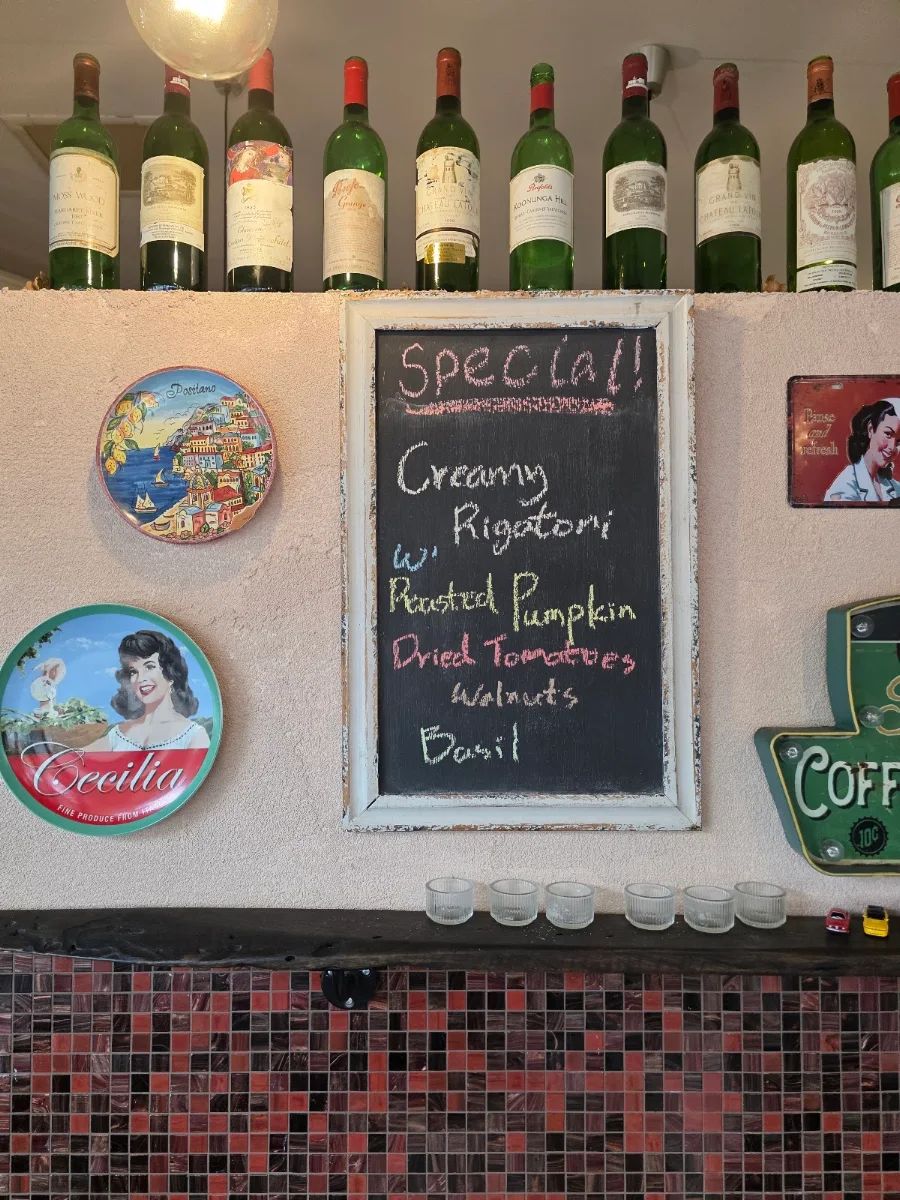 MOSS WOOD
MARGARET RIVER
Penfolds
Grange
GRAND VIN
CHATEAU LATOUR
Penfolds
KOONUNGA HILL
SHIRAZ CABERNET SAUVIGNON
GRAND VIN
CHATEAU LATOUR
Special!!
Creamy
Rigatoni
w'
Roasted Pumpkin
Dried Tomatoes
Walnuts
Basil
Positano
Pause
and
refresh
Cecilia
FINE PRODUCE FROM ITALY
COFF
10¢